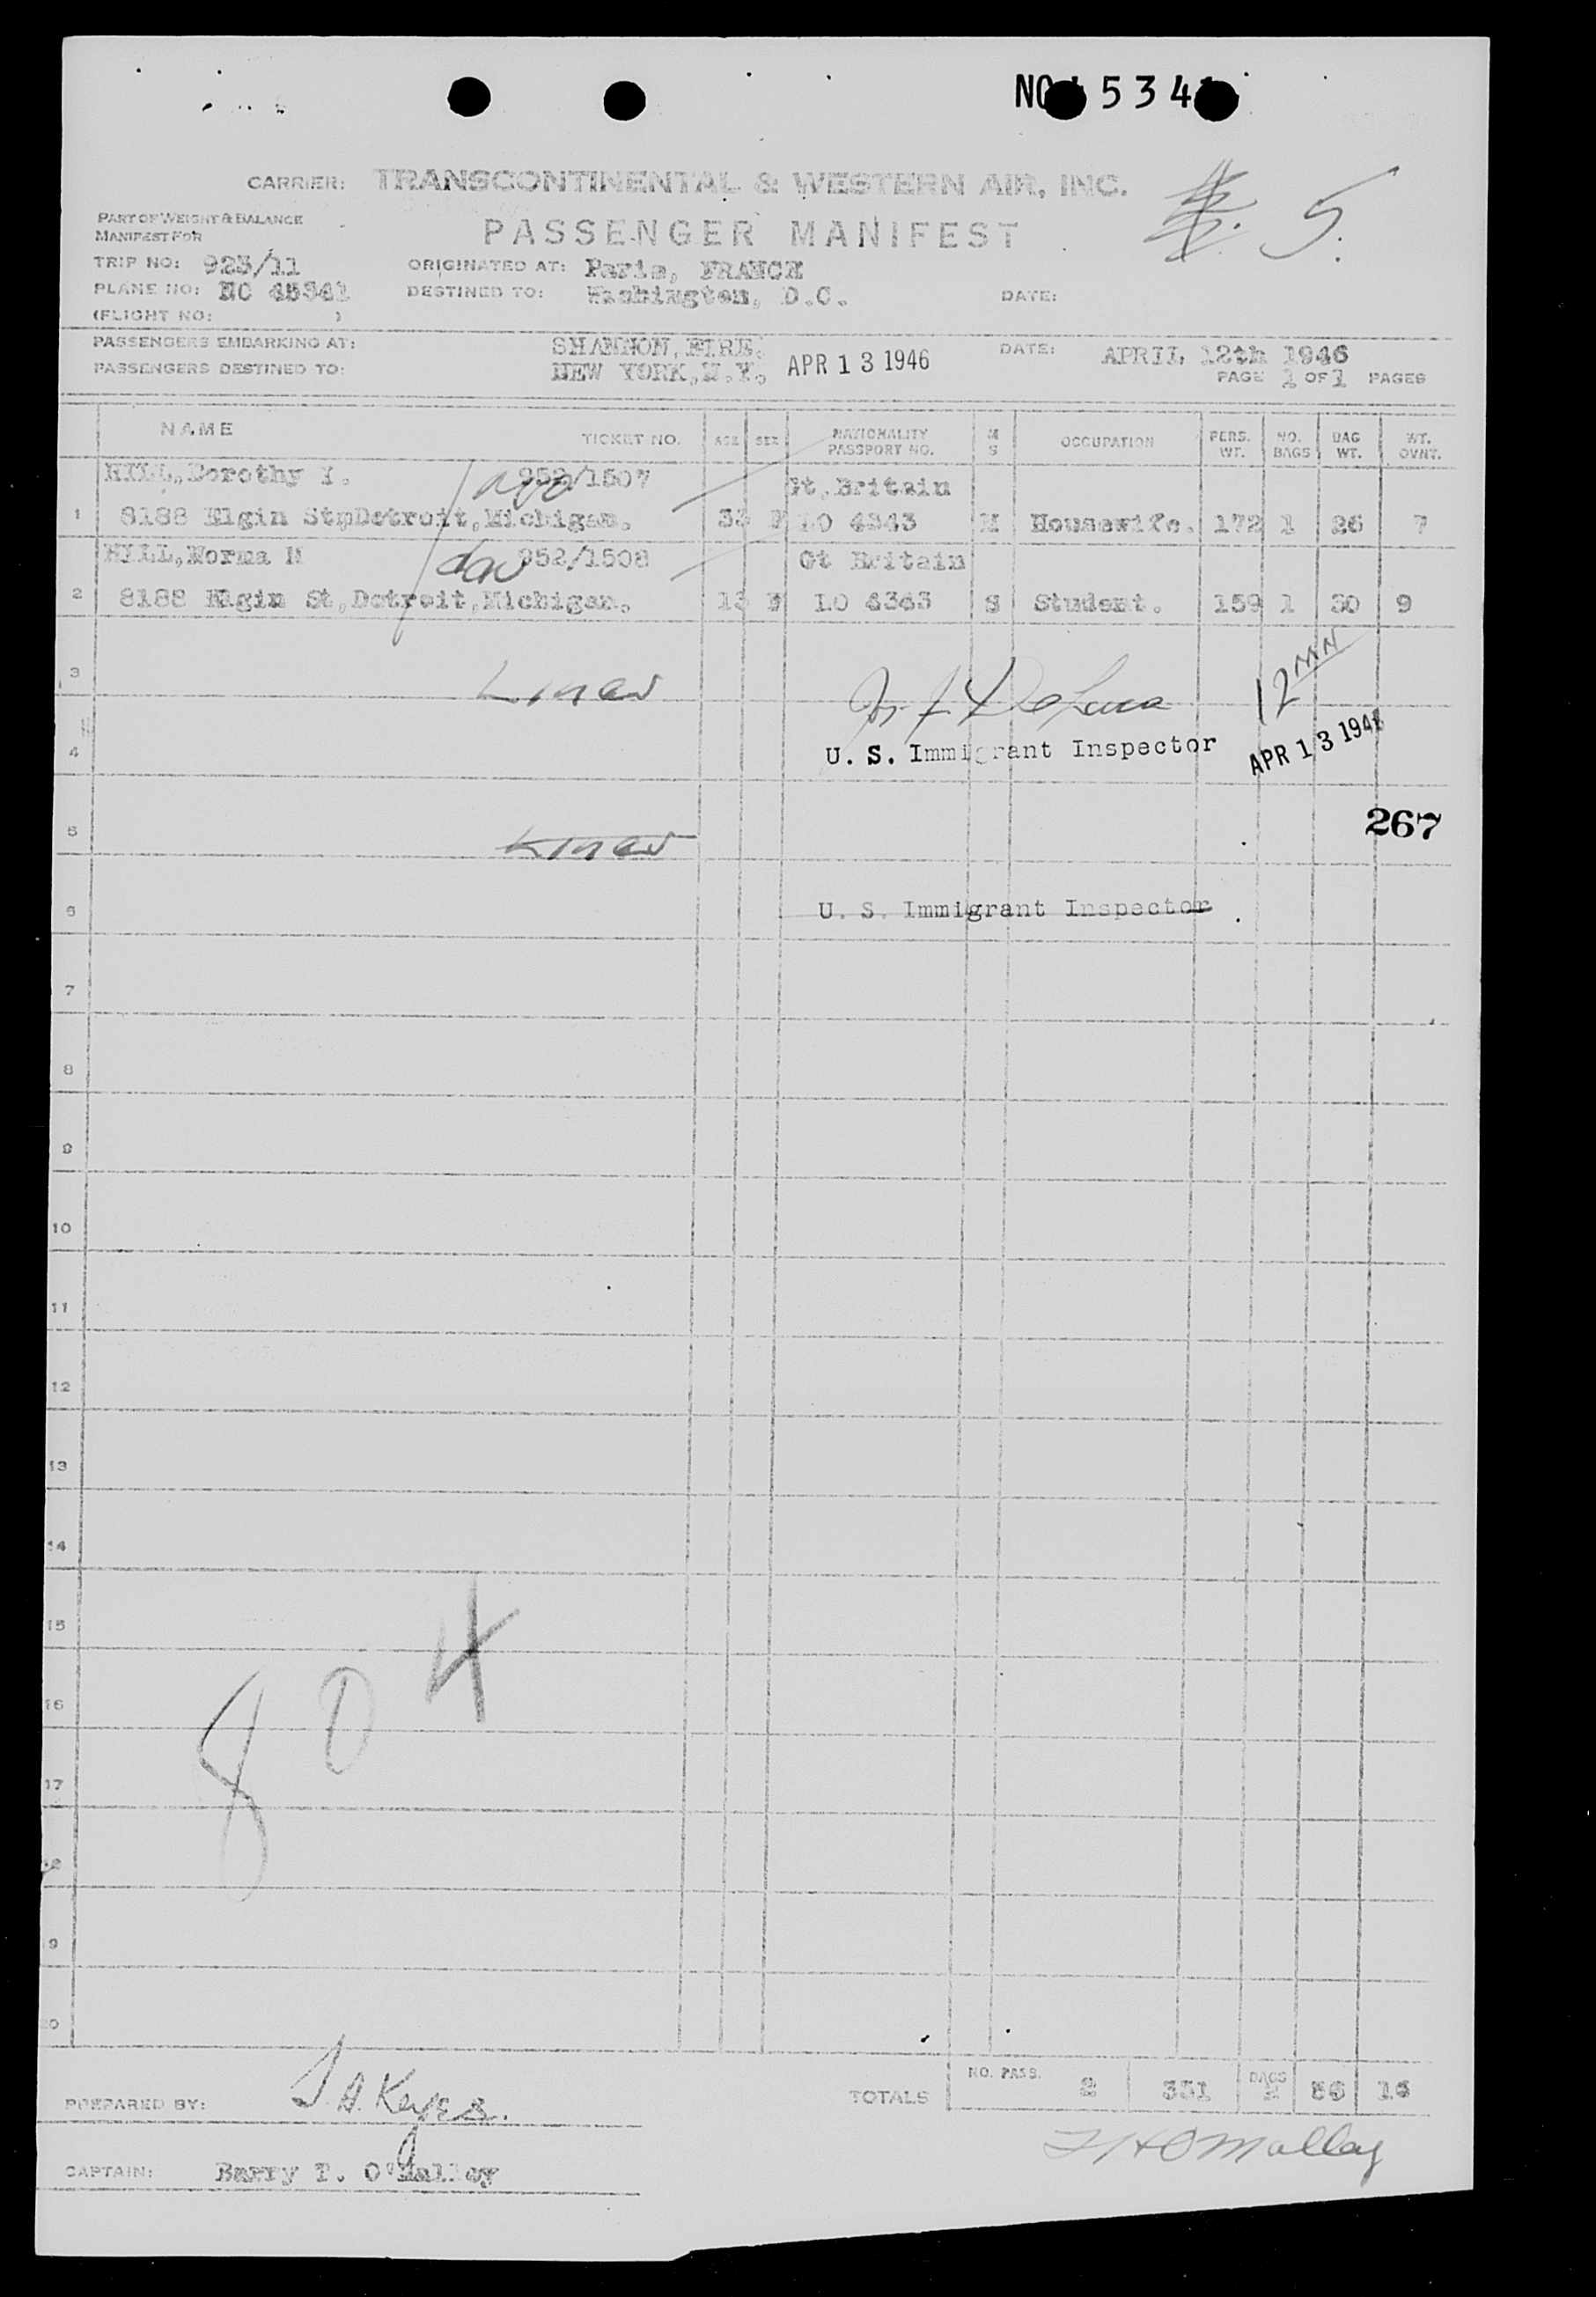 NO 534
CARRIER: TRANSCONTINENTAL & WESTERN AIR, INC.
5.
PART OF WEIGHT & BALANCE
MANIFEST FOR
PASSENGER MANIFEST
TRIP NO: 923/11 ORIGINATED AT: Paris, FRANCE
PLANE NO: NC 45341 DESTINED TO: Washington, D.C. DATE:
(FLIGHT NO: )
PASSENGERS EMBARKING AT: SHANNON, EIRE. DATE: APRIL 12th 1946
PASSENGERS DESTINED TO: NEW YORK, N.Y. APR 13 1946 PAGE 1 OF 1 PAGES
NAME TICKET NO. AGE SEX NATIONALITY PASSPORT NO. M S OCCUPATION PERS. WT. NO. BAGS BAG WT. WT. OVNT.
HILL, Dorothy Y. 952/1507 Gt. Britain
1 8188 Elgin St, Detroit, Michigan. 33 F LO 4343 M Housewife. 172 1 26 7
HILL, Norma M 952/1508 Gt Britain
2 8188 Elgin St, Detroit, Michigan. 13 F LO 4343 S Student. 159 1 30 9
3
12 MN
4 U. S. Immigrant Inspector APR 13 1946
267
5
6 U. S. Immigrant Inspector
7
8
9
10
11
12
13
14
15
16
804
17
19
PREPARED BY: J. A. Keyes. TOTALS NO. PASS. 2 331 BAGS 2 56 16
CAPTAIN: Barry T. O'Malley